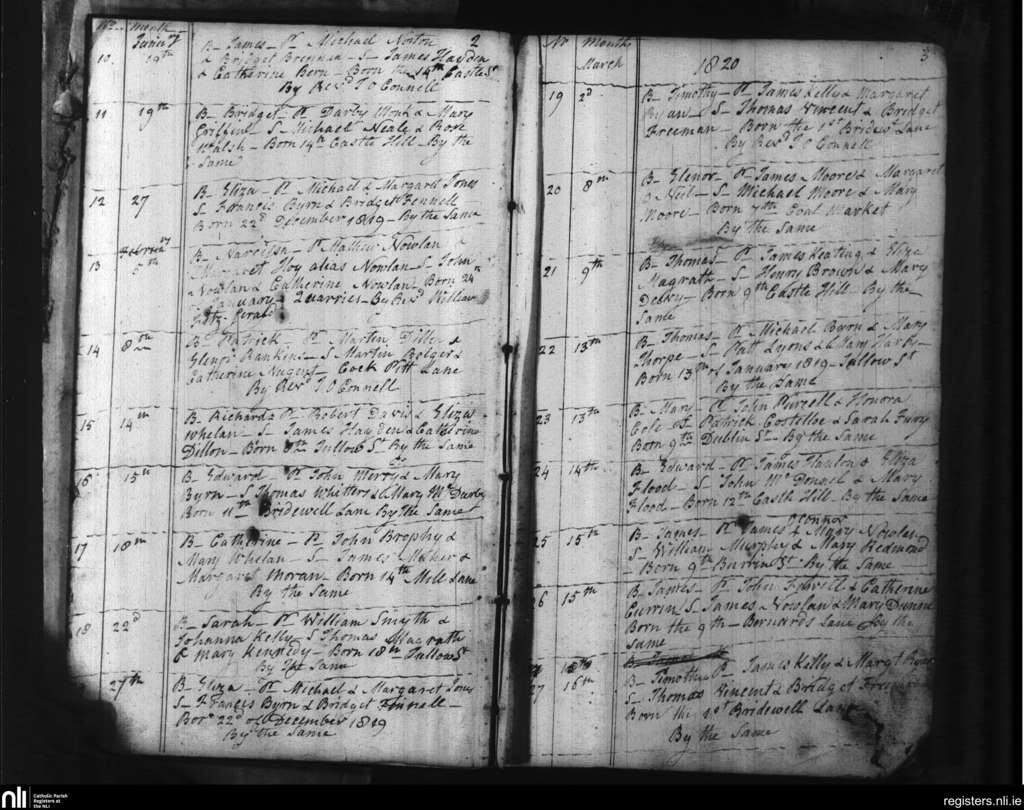 No. Month 2
January
10 19th B- James - Pt Michael Norton
& Bridget Brennan - S - James Hayden
& Catherine Bern - Born the 14th Castle St
By Revd J O Connell
11 19th B- Bridget - Pt Darby Monk & Mary
S Michael Nealy & Rose
Walsh - Born 14th Castle Hill - By the
Same
12 27 B- Eliza - Pt Michael & Margaret Jones
S Francis Byrn & Bridget Fennell
Born 22d December 1819 - By the Same
February
13 5th B- Narcissa - Pt Mathew Nowlan &
Margaret Hoy alias Nowlan S - John
Nowlan & Catherine Nowlan - Born 24th
January - Quarries - By Revd William
Fitz-Gerald
14 8th B- Patrick - Pt Martin &
Elenor Rankins - S - Martin Bolger &
Catherine Nugent - Cock Pitt Lane
By Revd J O Connell
15 14th B- Richard - Pt Robert Davis & Eliza
Whelan - S - James Hayden & Catherine
Dillon - Born 8th Tullow St By the Same
16 15th B- Edward - Pt John Merry & Mary
Byrn - S Thomas Whitters & Mary
Born 11th Bridewell Lane By the Same
17 18th B- Catherine - Pt John Brophy &
Mary Whelan - S - James Maher &
Margaret Moran - Born 14th Mill Lane
By the Same
18 22d B- Sarah - Pt William Smyth &
Johanna Kelly - S Thomas Magrath
& Mary Kennedy - Born 18th Tullow St
By the Same
27th B- Eliza - Pt Michael & Margaret Jones
S - Francis Byrn & Bridget Fennell -
Born 22d of December 1819
By the Same
No Month 1820 3
March
19 2d B- Timothy - Pt James Kelly & Margaret
Ryan - S - Thomas Vincent & Bridget
Freeman - Born the 1st Bridewl Lane
By Revd J O Connell
20 8th B- Elenor - Pt James Moore & Margaret
O Neil - S - Michael Moore & Mary
Moore - Born 7th Coal Market
By the Same
21 9th B- Thomas - Pt James Keating & Eliza
Magrath - S - Henry Brown & Mary
- Born 9th Castle Hill - By the
Same
22 13th B- Thomas - Pt Michael Byrn & Mary
Thorpe - S - Patt Lyons & Mary Darby -
Born 13th of January 1819 - Tullow St
By the Same
23 13th B- Mary - Pt John Purcell & Honora
Cole - S - Patrick Costelloe & Sarah Fury
Born 9th Dublin St - By the Same
24 14th B- Edward - Pt James Hanlon & Eliza
Flood - S - John Mc Donnel & Mary
Flood - Born 12th Castle Hill - By the Same
25 15th B- James - Pt James O Connor & Mary Nowlan
S - William Murphy & Mary Redmond
- Born 9th Burrin St - By the Same
26 15th B- James - Pt John & Catherine
Currin S - James Nowlan & Mary Dunne
Born the 9th - Bernards Lane By the
Same
27 16th B- Timothy - Pt James Kelly & Margt Ryan
S - Thomas Vincent & Bridget Freeman
Born the 1st Bridewell Lane
By the Same
nli Catholic Parish
Registers at
the NLI
registers.nli.ie